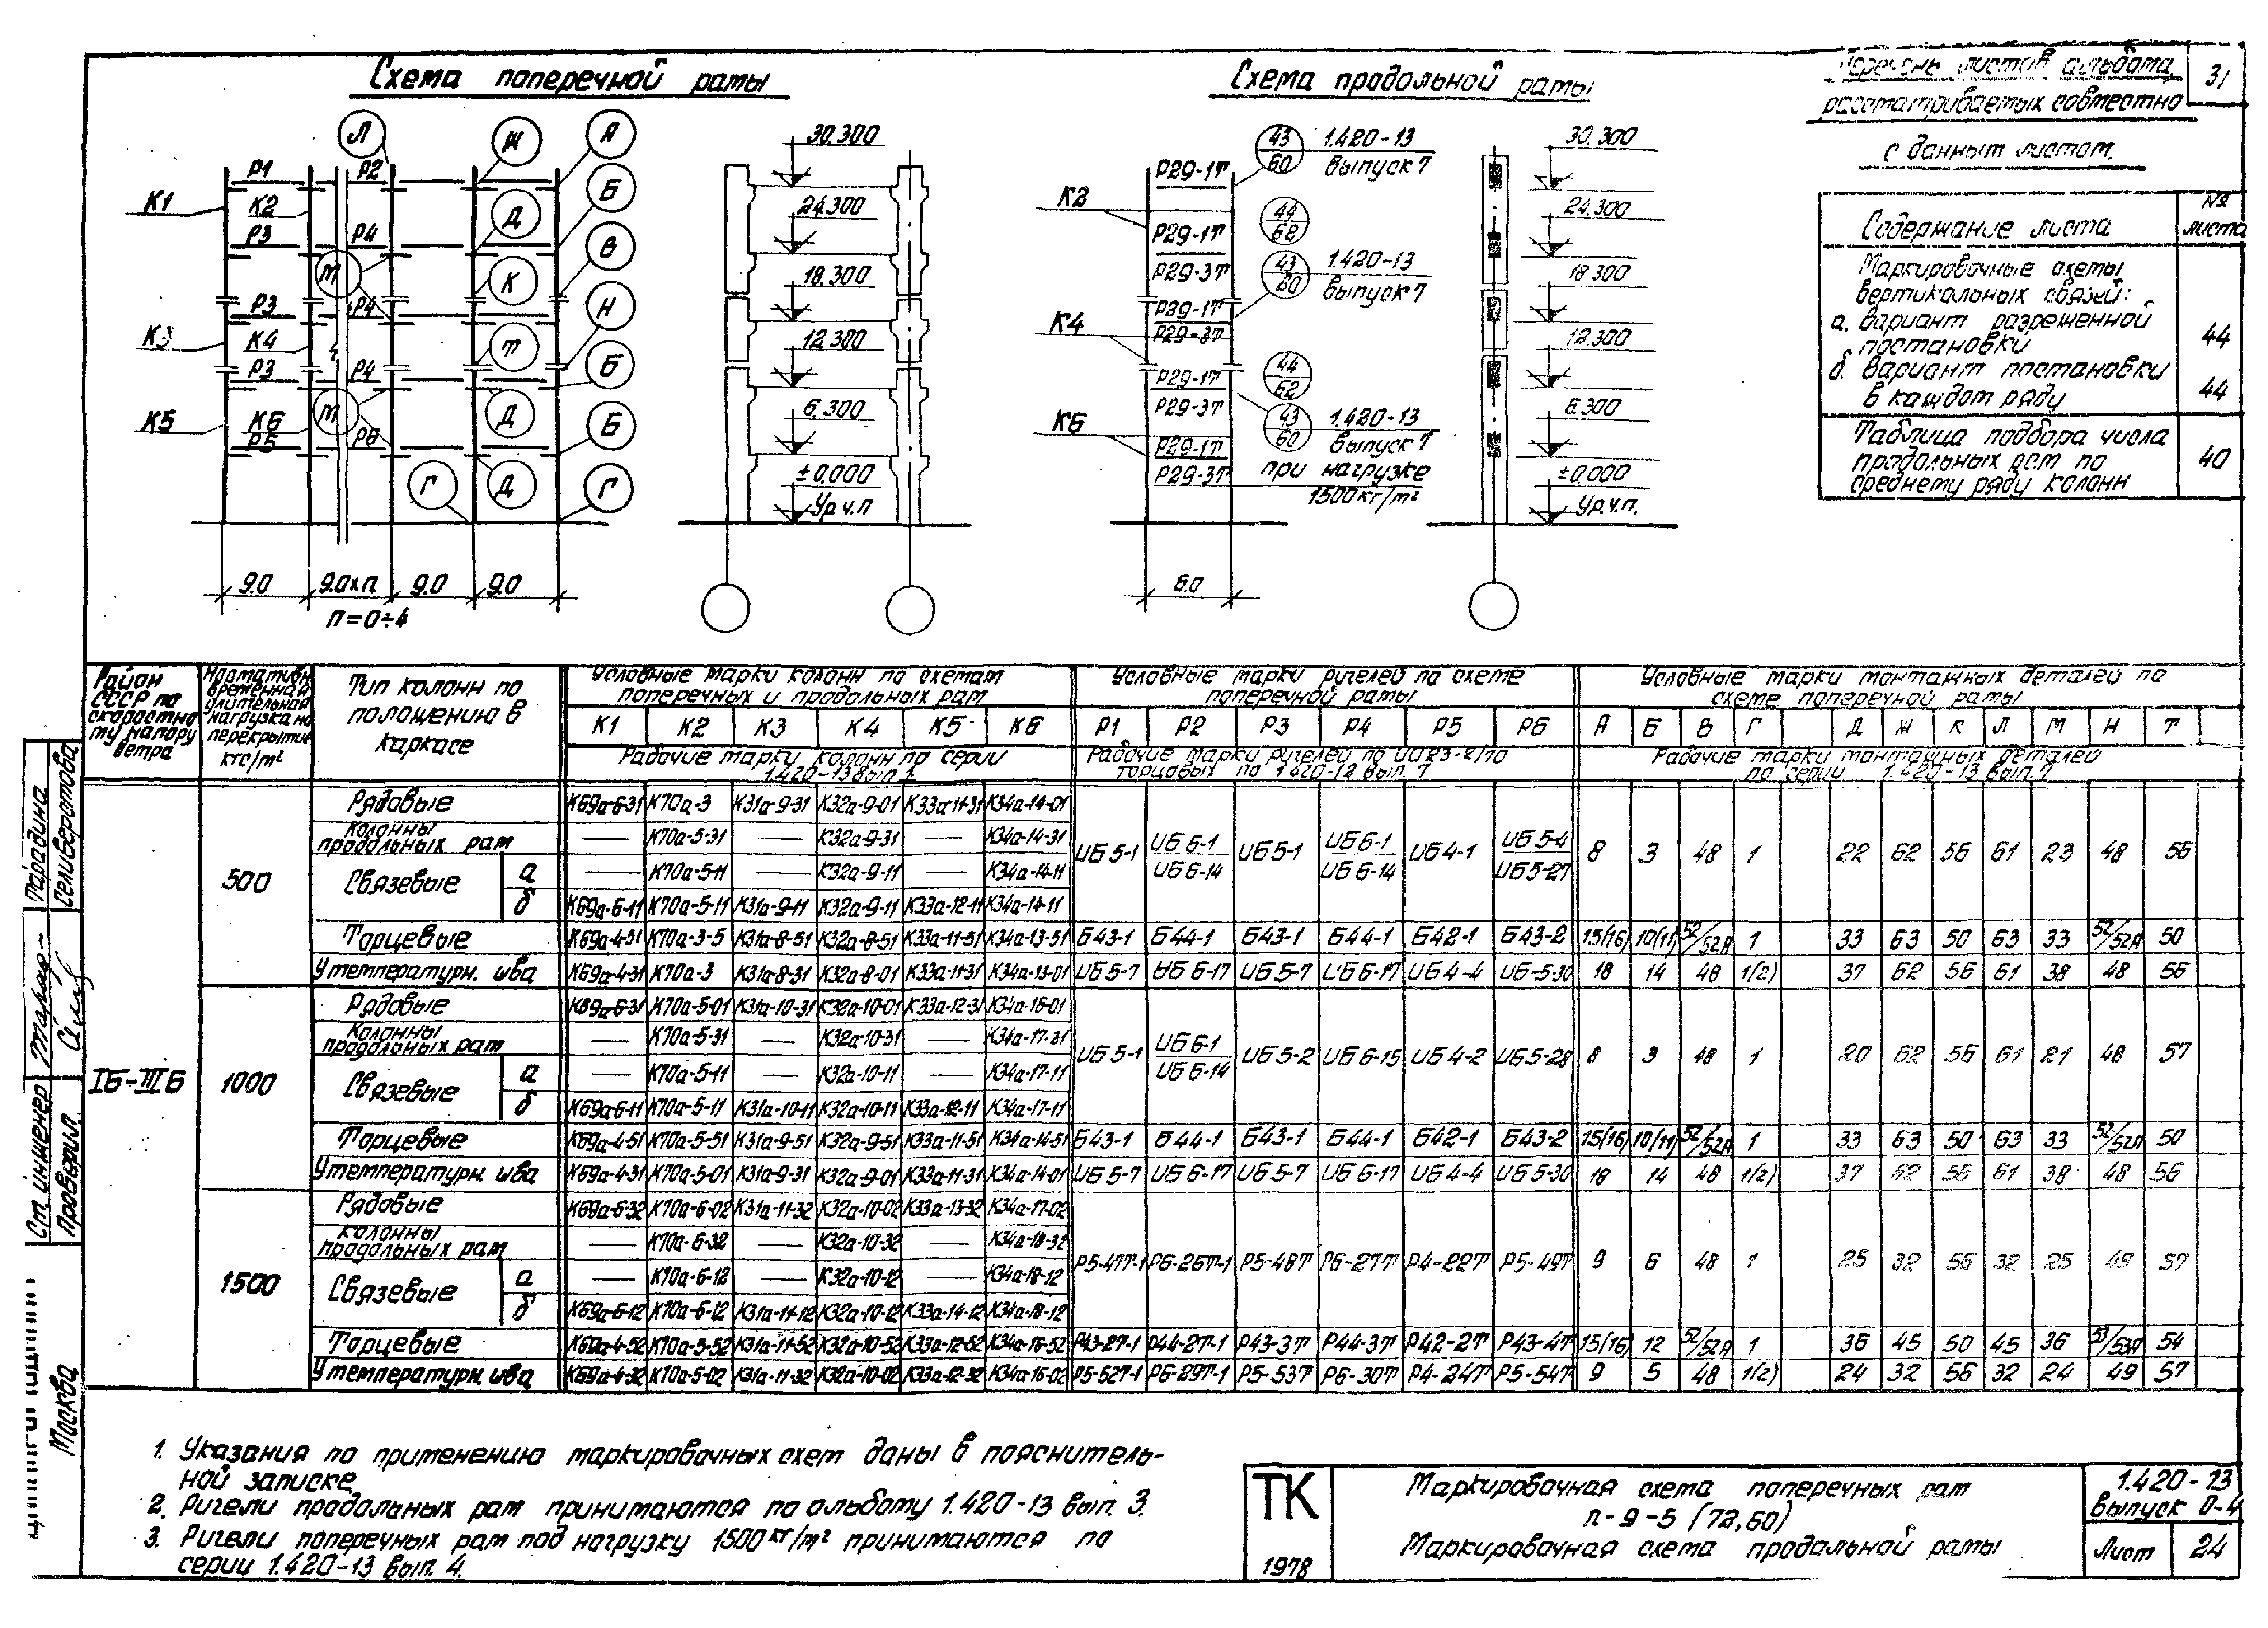 Схема поперечной рамы
Схема продольной рамы
Перечень листов альбома,
рассматриваемых совместно
с данным листом.
31
Содержание листа
№ листа
Маркировочные схемы
вертикальных связей:
а. Вариант разреженной
постановки
44
б. Вариант постановки
в каждом ряду
44
Таблица подбора числа
продольных рам по
среднему ряду колонн
40
Л Ж А Б Д В М К Н П Б М Д Б Г Д Г
К1 К2 К3 К4 К5 К6
Р1 Р2
Р3 Р4
Р3 Р4
Р3 Р4
Р5 Р6
9.0 9.0×п 9.0 9.0
п=0÷4
30.300
24.300
18.300
12.300
6.300
±0.000
Ур.ч.п
К2
К4
К6
Р29-1Т
Р29-1Т
Р29-3Т
Р29-1Т
Р29-3Т
Р29-1Т
Р29-3Т
Р29-1Т
Р29-3Т
43/60 1.420-13
выпуск 7
44/62
43/60 1.420-13
выпуск 7
44/62
43/60 1.420-13
выпуск 7
при нагрузке
1500кг/м²
6.0
30.300
24.300
18.300
12.300
6.300
±0.000
Ур.ч.п.
Район СССР по скоростному напору ветра
Нормативн. временная длительная нагрузка на перекрытие кгс/м²
Тип колонн по положению в каркасе
Условные марки колонн по схемам поперечных и продольных рам
Условные марки ригелей по схеме поперечной рамы
Условные марки монтажных деталей по схеме поперечной рамы
К1 К2 К3 К4 К5 К6 Р1 Р2 Р3 Р4 Р5 Р6 А Б В Г Д Ж К Л М Н Т
Рабочие марки колонн по серии 1.420-13 вып. 1.
Рабочие марки ригелей по ИИ23-2/70 торцовых по 1.420-12 вып. 7
Рабочие марки монтажных деталей по серии 1.420-13 вып. 7
IБ-IIIБ
500
Рядовые К69а-6-31 К70а-3 К31а-9-31 К32а-9-01 К33а-11-31 К34а-14-01
Колонны продольных рам — К70а-5-31 — К32а-9-31 — К34а-14-31
Связевые а — К70а-5-11 — К32а-9-11 — К34а-14-11
б К69а-6-11 К70а-5-11 К31а-9-11 К32а-9-11 К33а-12-11 К34а-14-11
ИБ5-1 ИБ6-1/ИБ6-14 ИБ5-1 ИБ6-1/ИБ6-14 ИБ4-1 ИБ5-4/ИБ5-27 8 3 48 1 22 62 56 61 23 48 56
Торцевые К69а-4-51 К70а-3-5 К31а-8-51 К32а-8-51 К33а-11-51 К34а-13-51 Б43-1 Б44-1 Б43-1 Б44-1 Б42-1 Б43-2 15(16) 10(11) 52/52А 1 33 63 50 63 33 52/52А 50
У температурн. шва К69а-4-31 К70а-3 К31а-8-31 К32а-8-01 К33а-11-31 К34а-13-01 ИБ5-7 ИБ6-17 ИБ5-7 ИБ6-17 ИБ4-4 ИБ-5-30 18 14 48 1(2) 37 62 56 61 38 48 56
1000
Рядовые К69а-6-31 К70а-5-01 К31а-10-31 К32а-10-01 К33а-12-31 К34а-16-01
Колонны продольных рам — К70а-5-31 — К32а-10-31 — К34а-17-31
Связевые а — К70а-5-11 — К32а-10-11 — К34а-17-11
б К69а-6-11 К70а-5-11 К31а-10-11 К32а-10-11 К33а-12-11 К34а-17-11
ИБ5-1 ИБ6-1/ИБ6-14 ИБ5-2 ИБ6-15 ИБ4-2 ИБ5-28 8 3 48 1 20 62 56 61 21 48 57
Торцевые К69а-4-51 К70а-5-51 К31а-9-51 К32а-9-51 К33а-11-51 К34а-14-51 Б43-1 Б44-1 Б43-1 Б44-1 Б42-1 Б43-2 15(16) 10(11) 52/52А 1 33 63 50 63 33 52/52А 50
У температурн. шва К69а-4-31 К70а-5-01 К31а-9-31 К32а-9-01 К33а-11-31 К34а-14-01 ИБ5-7 ИБ6-17 ИБ5-7 ИБ6-17 ИБ4-4 ИБ5-30 18 14 48 1(2) 37 62 56 61 38 48 56
1500
Рядовые К69а-6-32 К70а-6-02 К31а-11-32 К32а-10-02 К33а-13-32 К34а-17-02
Колонны продольных рам — К70а-6-32 — К32а-10-32 — К34а-18-32
Связевые а — К70а-6-12 — К32а-10-12 — К34а-18-12
б К69а-6-12 К70а-6-12 К31а-11-12 К32а-10-12 К33а-14-12 К34а-18-12
Р5-47Т-1 Р6-26Т-1 Р5-48Т Р6-27Т Р4-22Т Р5-49Т 9 6 48 1 25 32 56 32 25 49 57
Торцевые К69а-4-52 К70а-5-52 К31а-11-52 К32а-10-52 К33а-12-52 К34а-16-52 Р43-2Т-1 Р44-2Т-1 Р43-3Т Р44-3Т Р42-2Т Р43-4Т 15(16) 12 52/52А 1 36 45 50 45 36 53/53А 54
У температурн. шва К69а-4-32 К70а-5-02 К31а-11-32 К32а-10-02 К33а-12-32 К34а-16-02 Р5-52Т-1 Р6-29Т-1 Р5-53Т Р6-30Т Р4-24Т Р5-54Т 9 5 48 1(2) 24 32 56 32 24 49 57
1. Указания по применению маркировочных схем даны в пояснитель-
ной записке
2. Ригели продольных рам принимаются по альбому 1.420-13 вып. 3.
3. Ригели поперечных рам под нагрузку 1500кг/м² принимаются по
серии 1.420-13 вып. 4.
ТК
1978
Маркировочная схема поперечных рам
п-9-5 (72,60)
Маркировочная схема продольной рамы
1.420-13
Выпуск 0-4
Лист 24
Ст. инженер Тарадина
Проверил Селиверстова
Москва